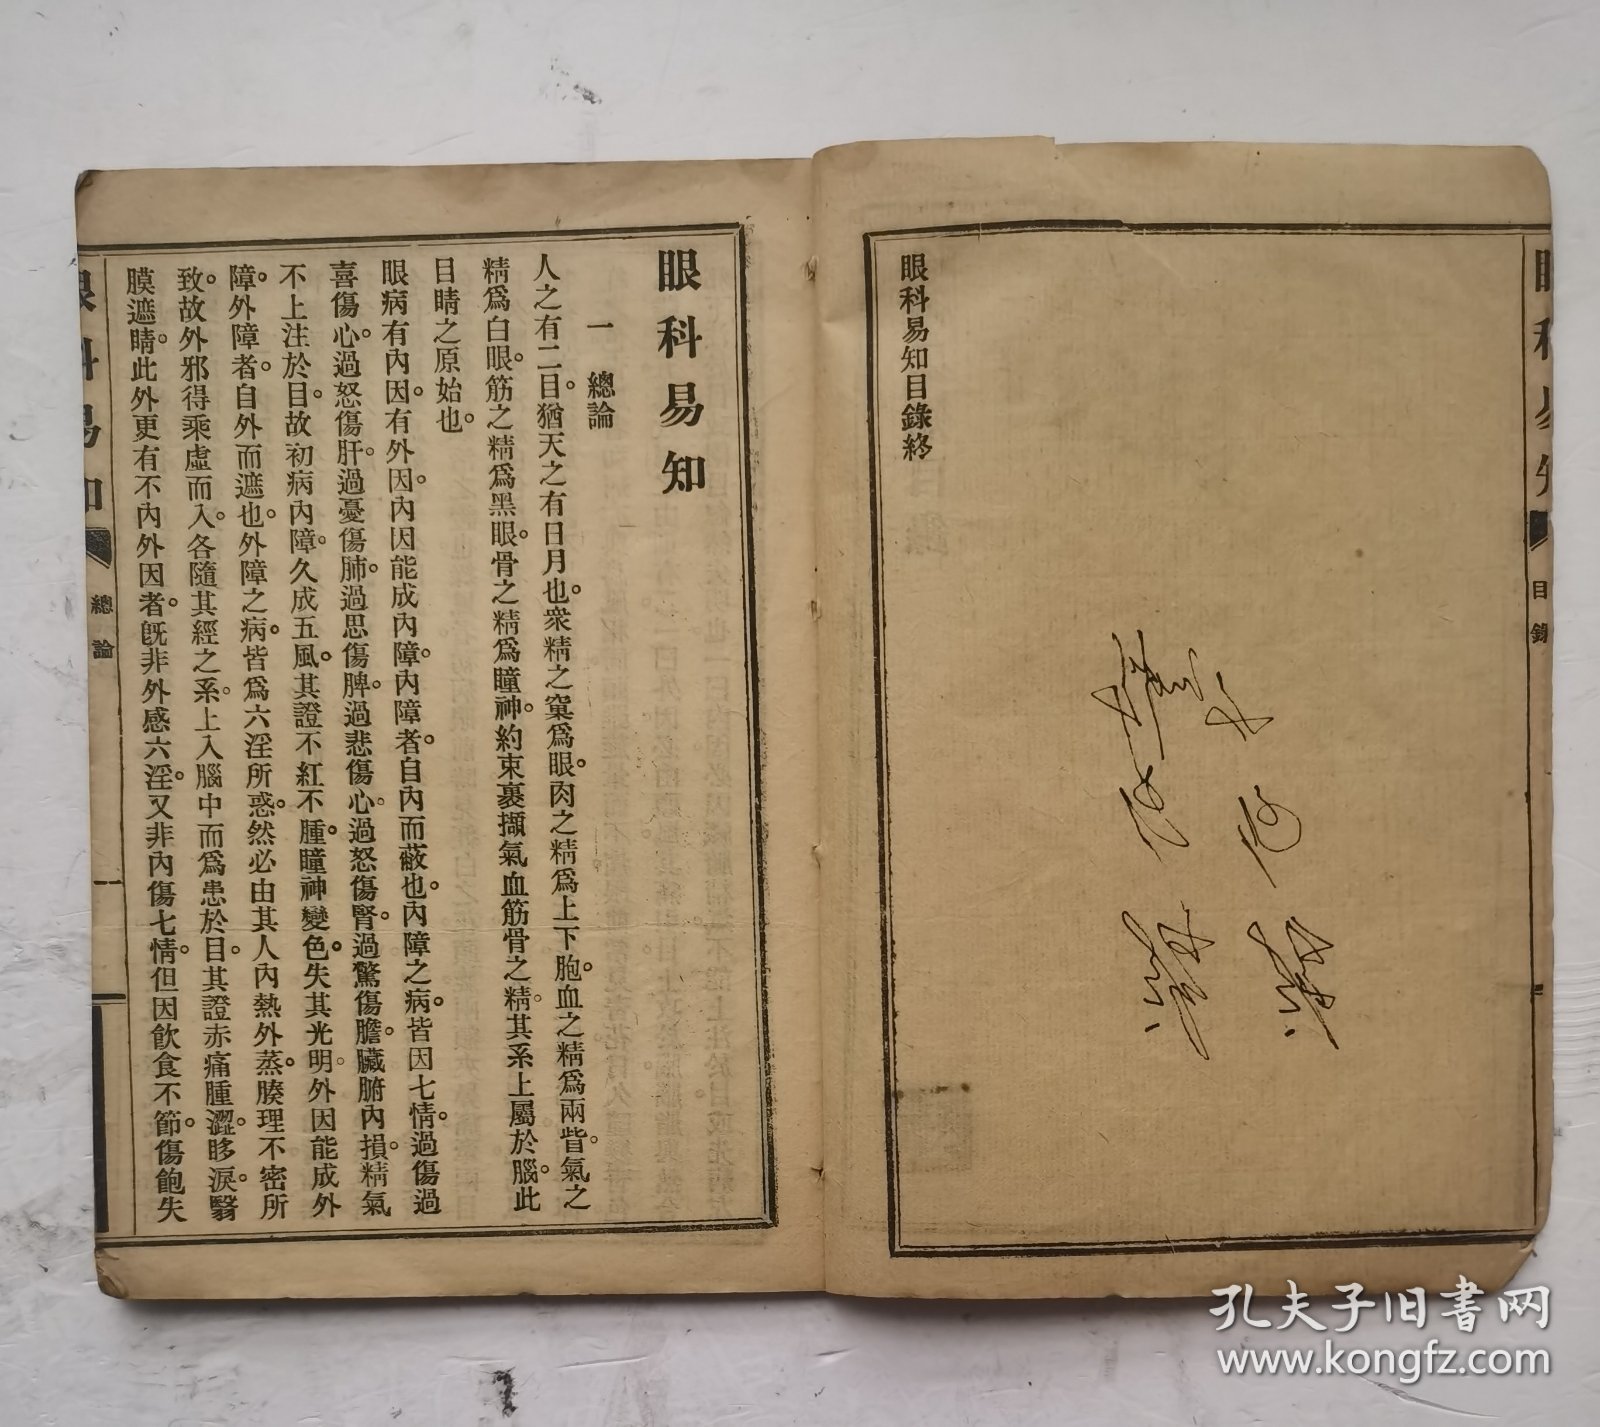 眼科易知
目錄
眼科易知目錄終
眼科易知
一　總論
人之有二目。猶天之有日月也。衆精之窠爲眼。肉之精爲上下胞。血之精爲兩眥。氣之
精爲白眼。筋之精爲黑眼。骨之精爲瞳神。約束裹擷氣血筋骨之精。其系上屬於腦。此
目睛之原始也。
眼病有內因。有外因。內因能成內障。內障者。自內而蔽也。內障之病。皆因七情。過傷過
喜傷心。過怒傷肝。過憂傷肺。過思傷脾。過悲傷心。過怒傷腎。過驚傷膽。臟腑內損。精氣
不上注於目。故初病內障。久成五風。其證不紅不腫。瞳神變色。失其光明。外因能成外
障。外障者。自外而遮也。外障之病。皆爲六淫所惑。然必由其人內熱外蒸。腠理不密所
致。故外邪得乘虛而入。各隨其經之系。上入腦中而爲患於目。其證赤痛腫澀。眵淚。翳
膜遮睛。此外更有不內外因者。旣非外感六淫。又非內傷七情。但因飲食不節。傷飽失
眼科易知
總論
一
孔夫子旧書网
www.kongfz.com